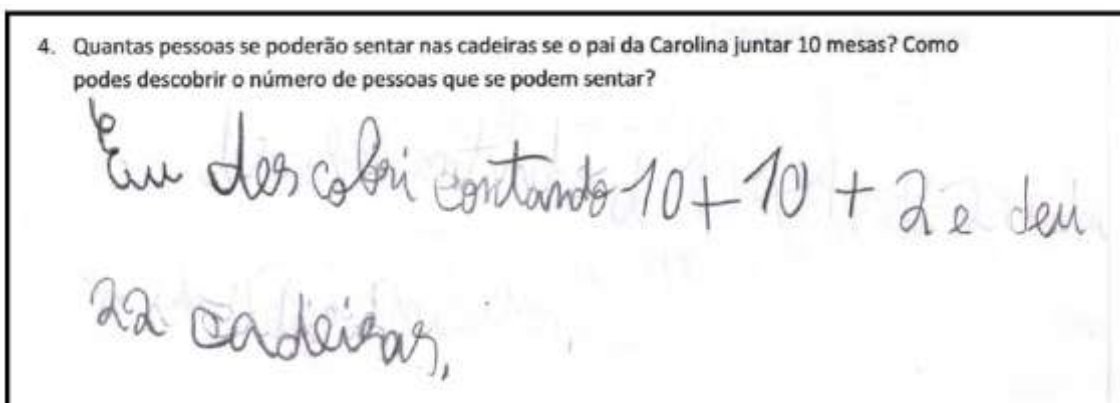 4. Quantas pessoas se poderão sentar nas cadeiras se o pai da Carolina juntar 10 mesas? Como
podes descobrir o número de pessoas que se podem sentar?
Eu descobri contando 10+10+2 e deu
22 cadeiras,